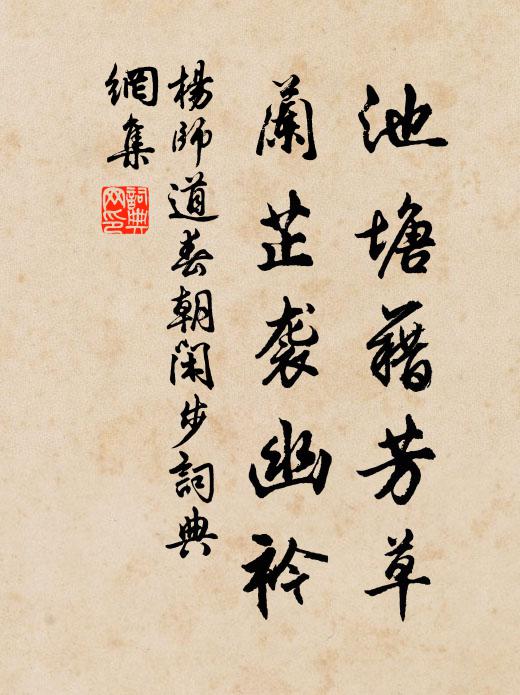 池塘藉芳草
蘭芷袭幽衿
楊師道春朝閑步詞典
網集
詞典网印